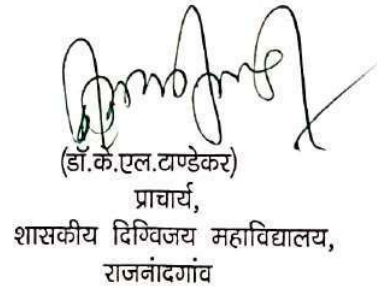 (डॉ.के.एल.टाण्डेकर)
प्राचार्य,
शासकीय दिग्विजय महाविद्यालय,
राजनांदगांव